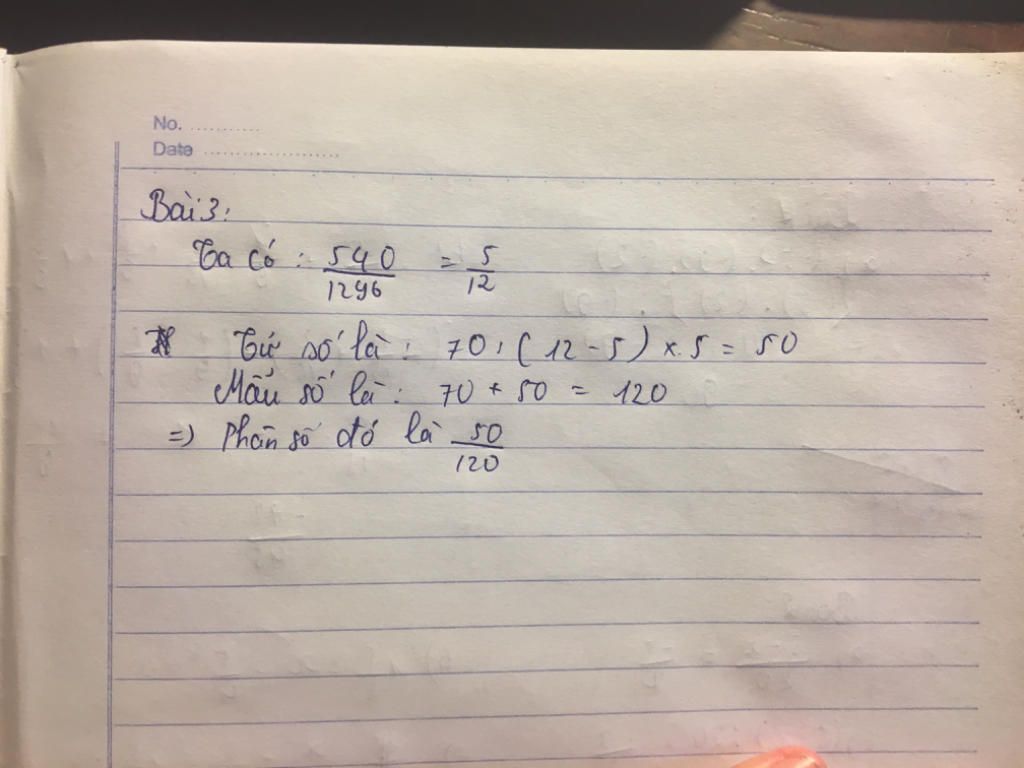 No. ............
Date ......................
Bài 3:
Ta có : 540/1296 = 5/12
Tử số là : 70 : ( 12 - 5 ) x 5 = 50
Mẫu số là : 70 + 50 = 120
=> Phân số đó là 50/120